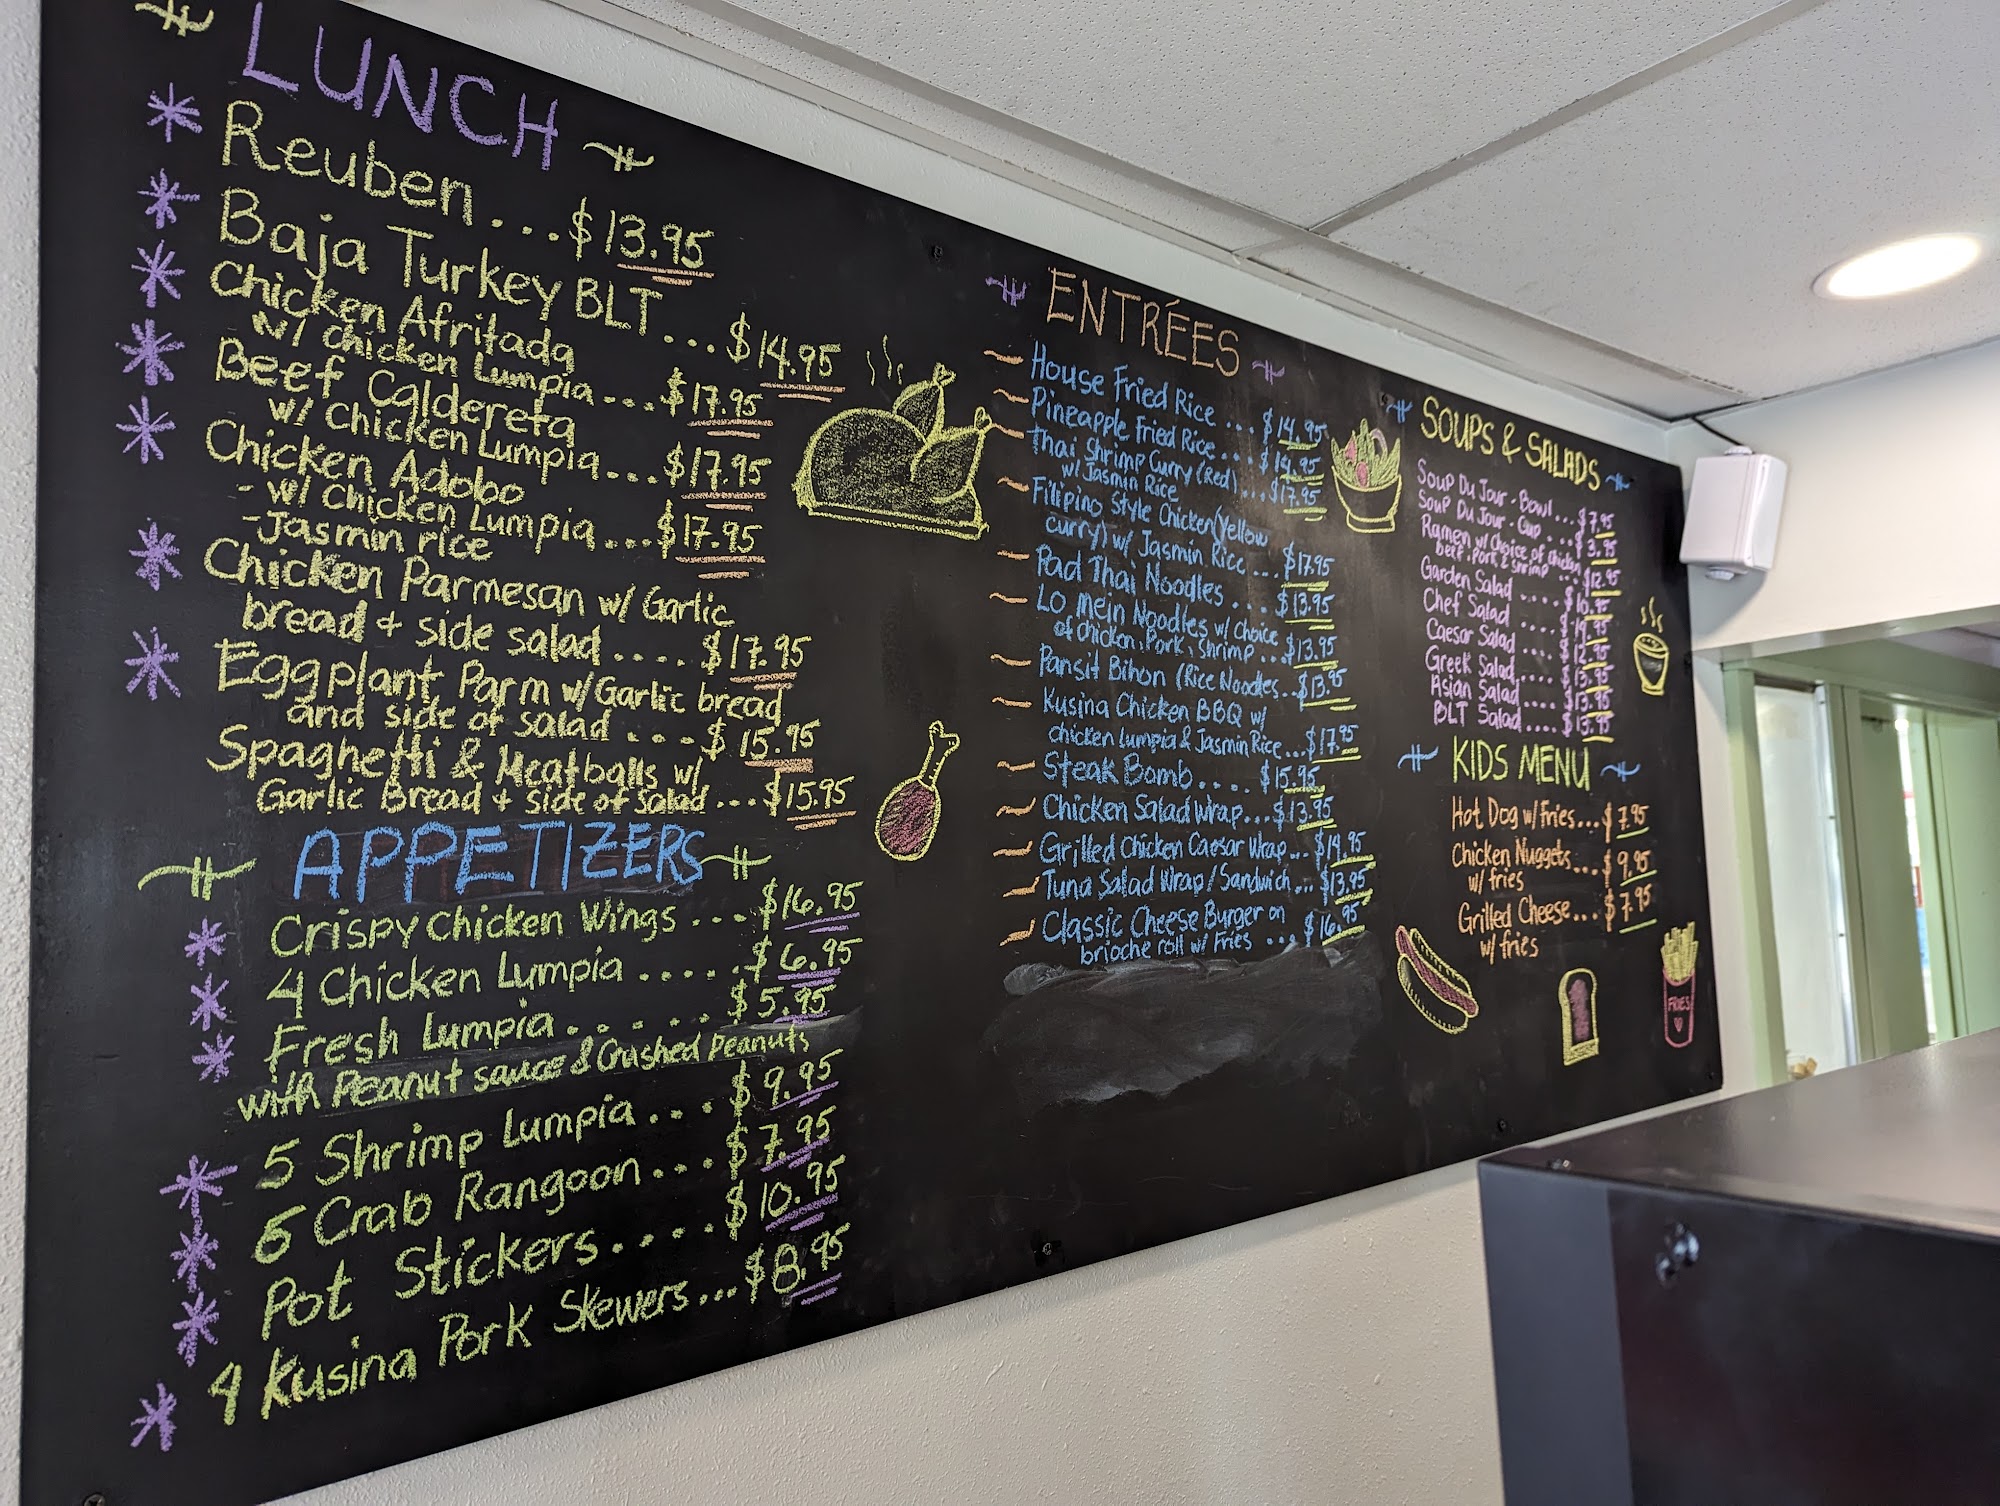 LUNCH
Reuben...$13.95
Baja Turkey BLT...$14.95
Chicken Afritada
w/ chicken Lumpia...$17.95
Beef Caldereta
w/ Chicken Lumpia...$17.95
Chicken Adobo
- w/ Chicken Lumpia...$17.95
-Jasmin rice
Chicken Parmesan w/ Garlic
bread + side salad....$17.95
Eggplant Parm w/Garlic bread
and side of salad....$15.95
Spaghetti & Meatballs w/
Garlic Bread + side of salad...$15.95
APPETIZERS
Crispy Chicken Wings...$16.95
4 Chicken Lumpia.....$6.95
Fresh Lumpia......$5.95
with Peanut sauce & Crushed Peanuts
5 Shrimp Lumpia....$9.95
6 Crab Rangoon...$7.95
Pot Stickers....$10.95
4 Kusina Pork Skewers...$8.95
ENTRÉES
House Fried Rice...$14.95
Pineapple Fried Rice...$14.95
Thai Shrimp Curry (Red)...$17.95
w/ Jasmin Rice
Filipino Style Chicken (Yellow
curry) w/ Jasmin Rice...$17.95
Pad Thai Noodles...$13.95
Lo mein Noodles w/ choice
of chicken, Pork, shrimp...$13.95
Pansit Bihon (Rice Noodles...$13.95
Kusina Chicken BBQ w/
chicken lumpia & Jasmin Rice...$17.95
Steak Bomb....$15.95
Chicken Salad Wrap...$13.95
Grilled Chicken Caesar Wrap...$14.95
Tuna Salad Wrap/Sandwich...$13.95
Classic Cheese Burger on
brioche roll w/ Fries...$16.95
SOUPS & SALADS
Soup Du Jour - Bowl...$7.95
Soup Du Jour - Cup...$3.95
Ramen w/ Choice of chicken
beef, Pork & shrimp...$12.95
Garden Salad....$10.95
Chef Salad
Caesar Salad....$12.95
Greek Salad....$13.95
Asian Salad....$13.95
BLT Salad....$13.95
KIDS MENU
Hot Dog w/Fries...$7.95
Chicken Nuggets...$9.95
w/ fries
Grilled Cheese...$7.95
w/ fries
FRIES